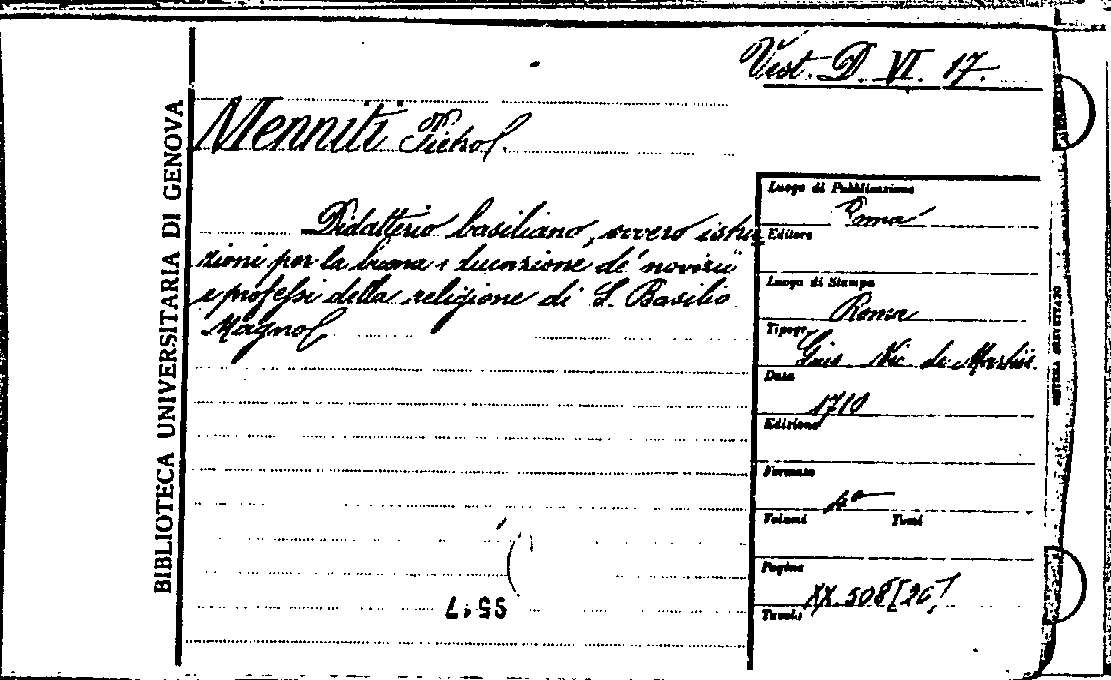 Vest. D. VI. 17.
BIBLIOTECA UNIVERSITARIA DI GENOVA
Menniti Pietro.
Didatterio basiliano, ovvero istru
zioni per la buona educazione de' novizii
e professi della religione di S. Basilio
Magno.
Luogo di Pubblicazione
Roma
Editore
Luogo di Stampa
Roma
Tipogr.
Gius. Nic. de Martiis.
Data
1710
Edizione
Formato
4º
Volumi Tomi
Pagine
XX. 508 [20]
Tavole